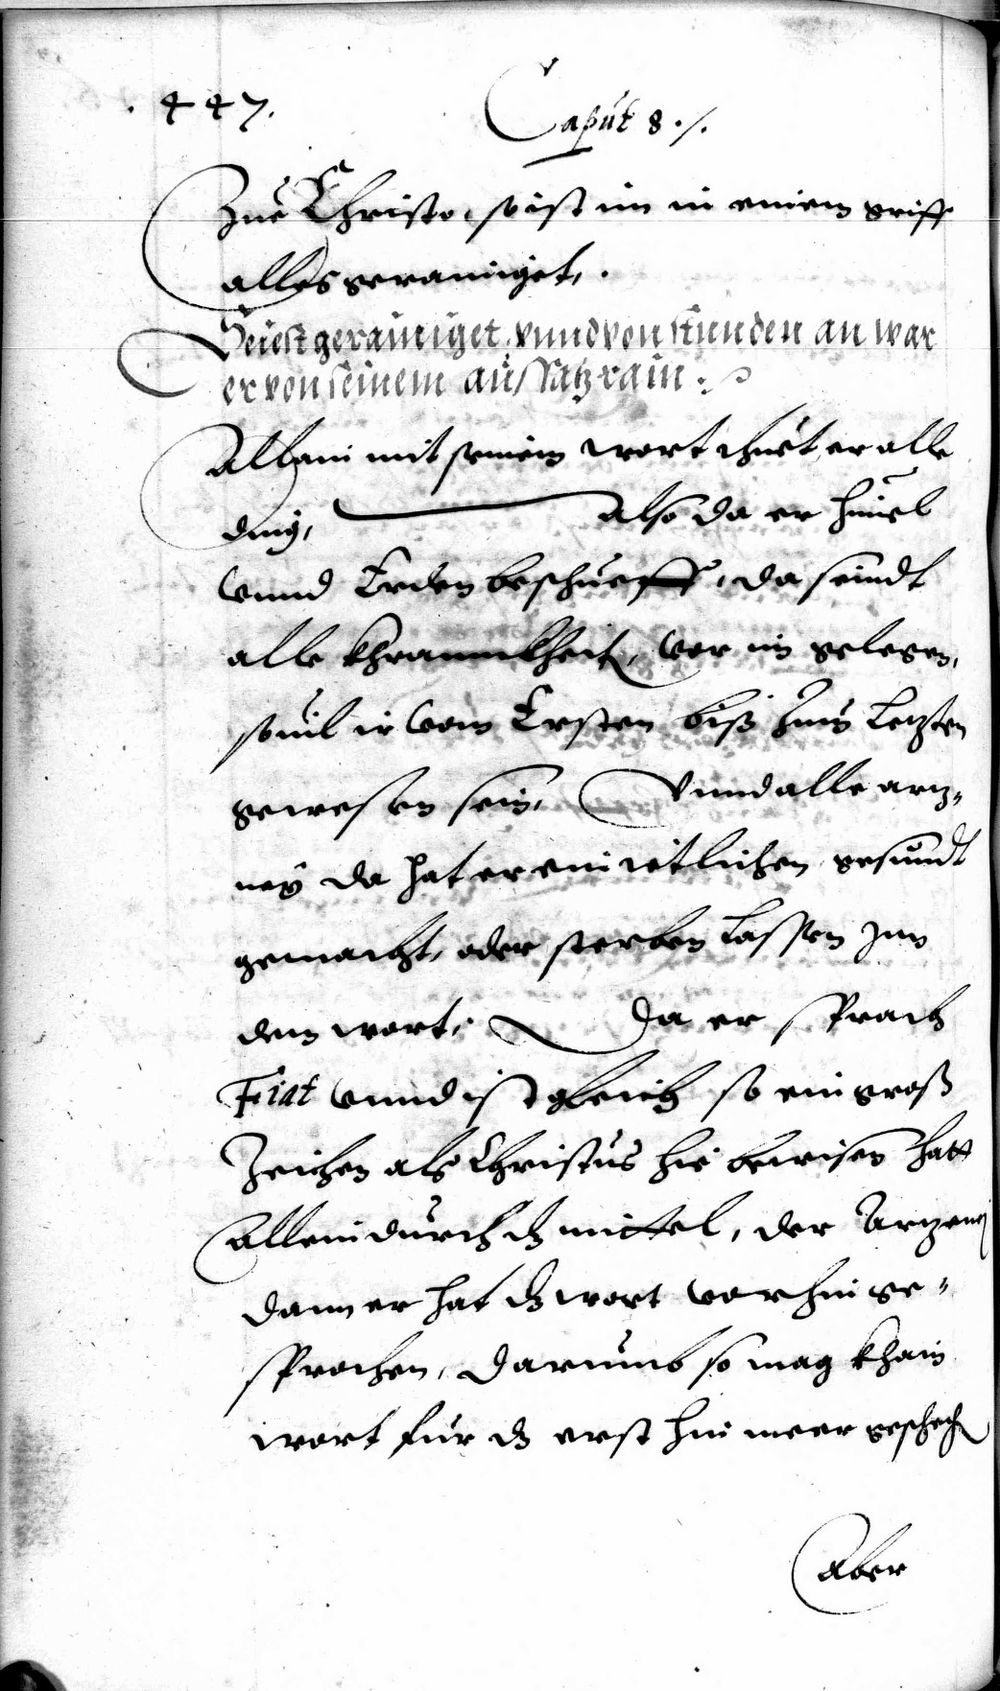 . 447.
Caput 8 ./.
Zue Christo, so ist im in einem griff
alles gerainiget, .
Seiest gerainiget. vnnd von stunden an war
er von seinem aussatz rain .
Allain mit seinem wort thuet er alle
ding, also da er himel
vnnd Erden beschueff, da seindt
alle khrannkheit, vor im gelegen,
souil ir vom Ersten biß zum letzten
gewesen sein, Vnnd alle artz-
ney da hat er ein ietlichen gesundt
gemacht, oder sterben lassen inn
dem wort, Da er sprach
Fiat vnnd ist gleich so ein groß
Zeichen als Christus hie bewisen hatt
Allein durch dz mittel, der Artzeney
dann er hat dz wort vorhin ge-
sprochen, darumb so mag khain
wort für dz erst hin meer geschech
Aber